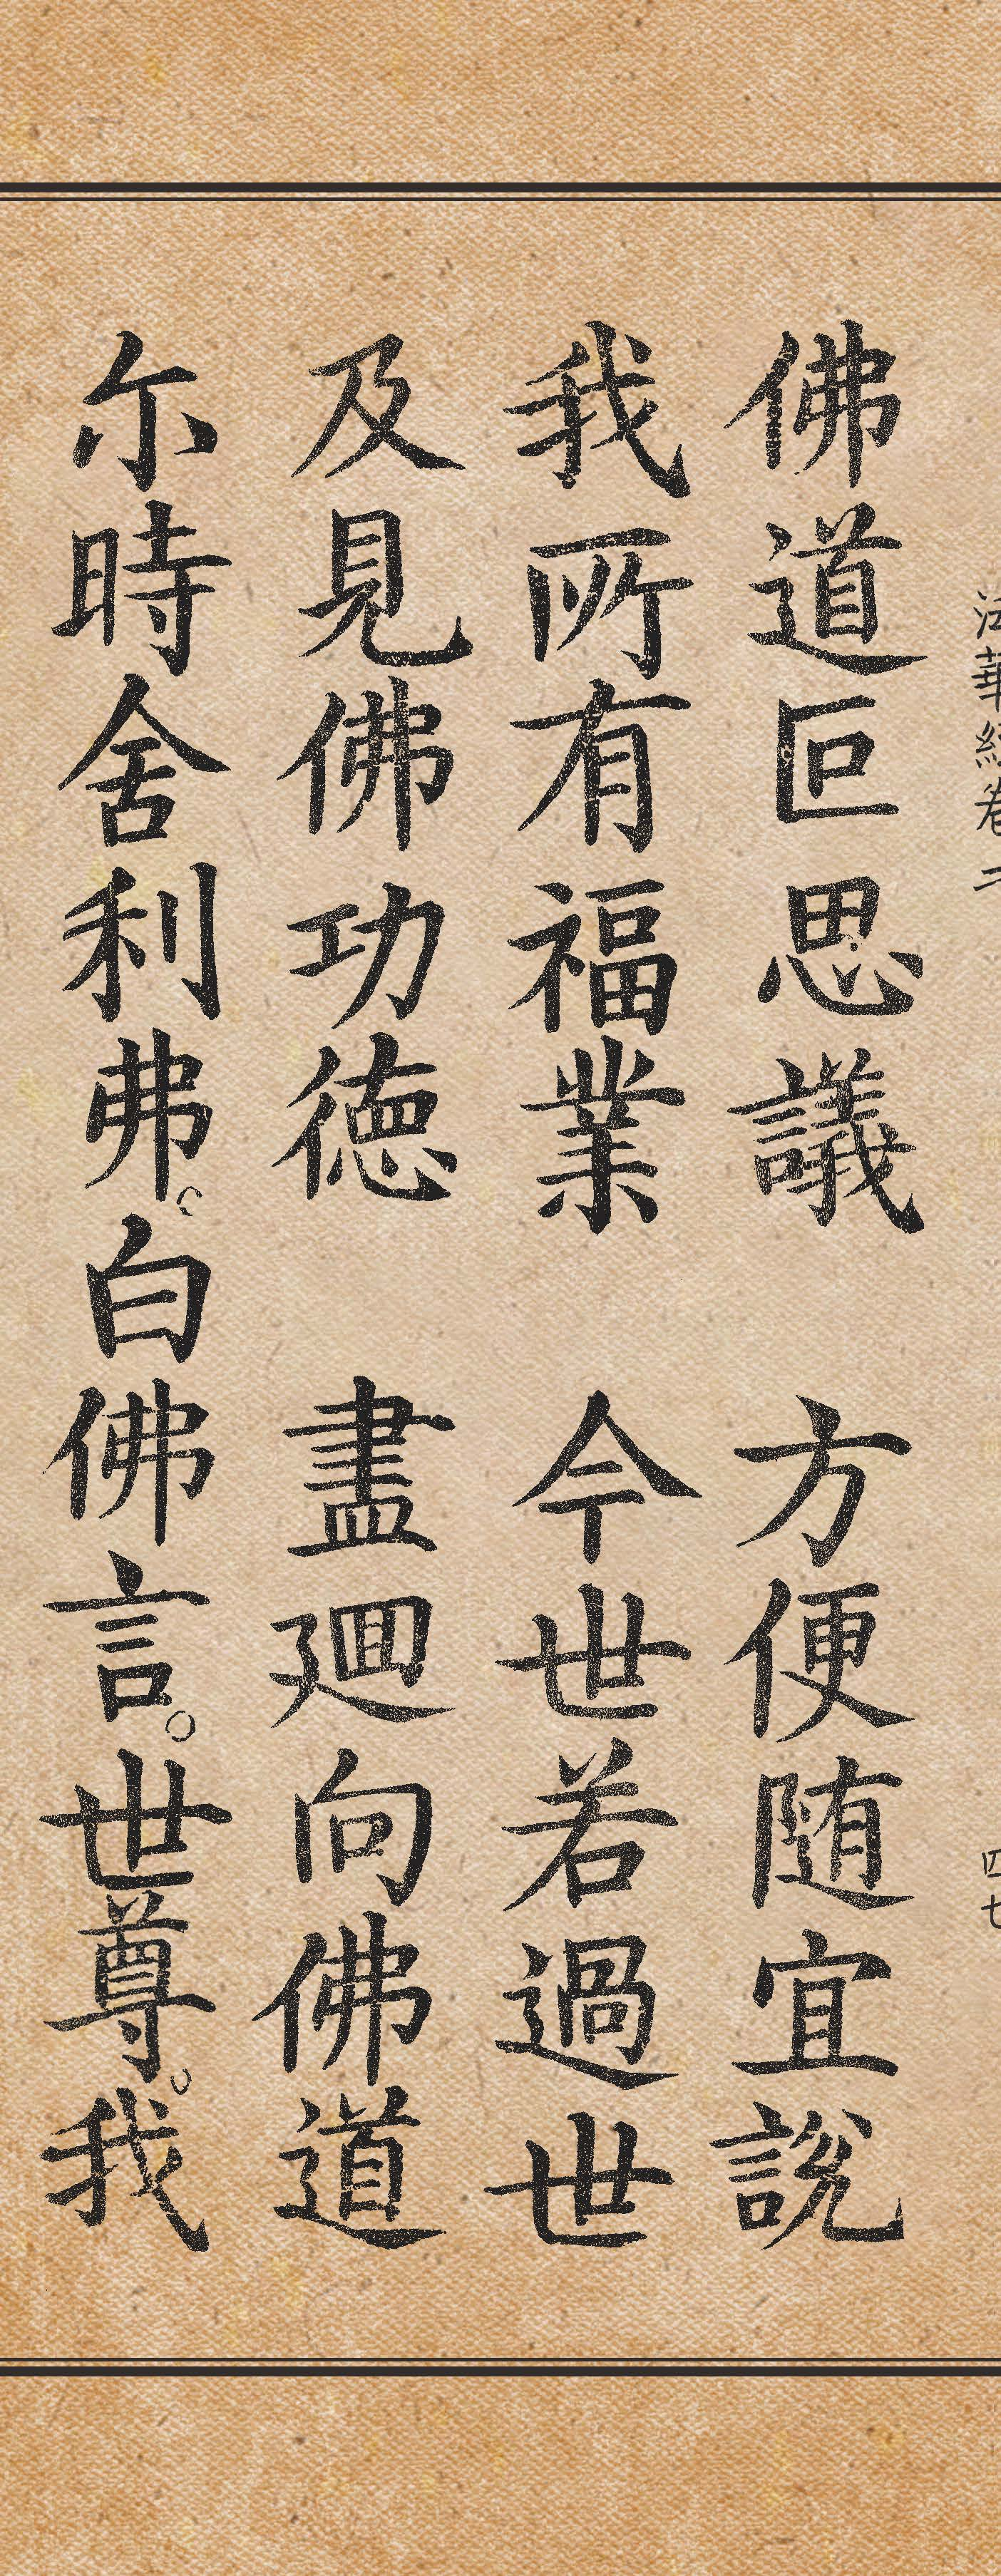 法華經卷二 四七
佛道叵思議 方便随宜說
我所有福業 今世若過世
及見佛功德 盡廻向佛道
尓時舍利弗。白佛言。世尊。我